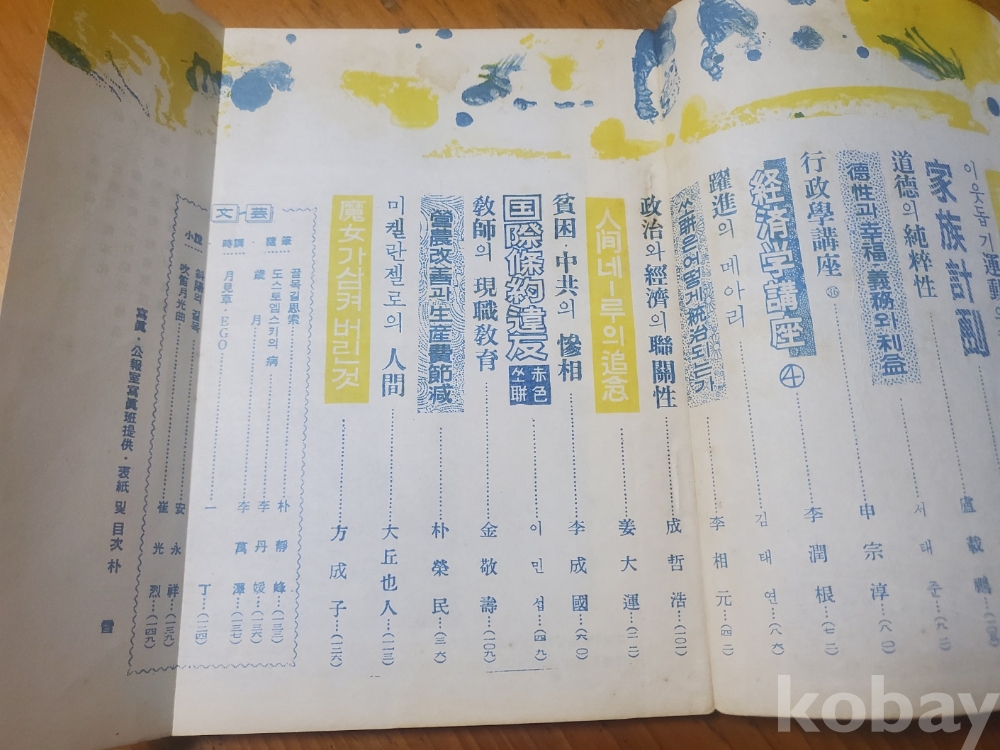 이웃돕기運動의
家族計劃 盧載鵬
道德의 純粹性 서태준…(八二)
德性과幸福·義務와利益 申宗淳…(八〇)
行政學講座 李潤根…(七二)
経済学講座④ 김태연…(八六)
躍進의 메아리 李相元…(四二)
쏘聯은어떻게統治되는가
政治와 經濟의 聯關性 成哲浩…(一〇一)
人间네-루의追念 姜大運…(一二)
貧困·中共의 慘相 李成國…(六〇)
国際條約違反 赤色쏘聯 이민섭…(四九)
敎師의 現職敎育 金敬壽…(一〇九)
營農改善과生産費節减 朴榮民…(三六)
미켈란젤로의 人間 大丘也人…(一一三)
魔女가삼켜버린것 方成子…(一二六)
文芸
隨筆
골목길思索 朴靜峰…(一三三)
도스토엡스키의 病 李丹媛…(一三六)
歲月 李萬澤…(一三七)
詩調
月見草·EGO 一丁…(一二四)
小說
斜陽의 길목 安永祥…(一三九)
吹奮月光曲 崔光烈…(一四九)
寫眞·公報室寫眞班提供·表紙 및 目次 朴雪
kobay